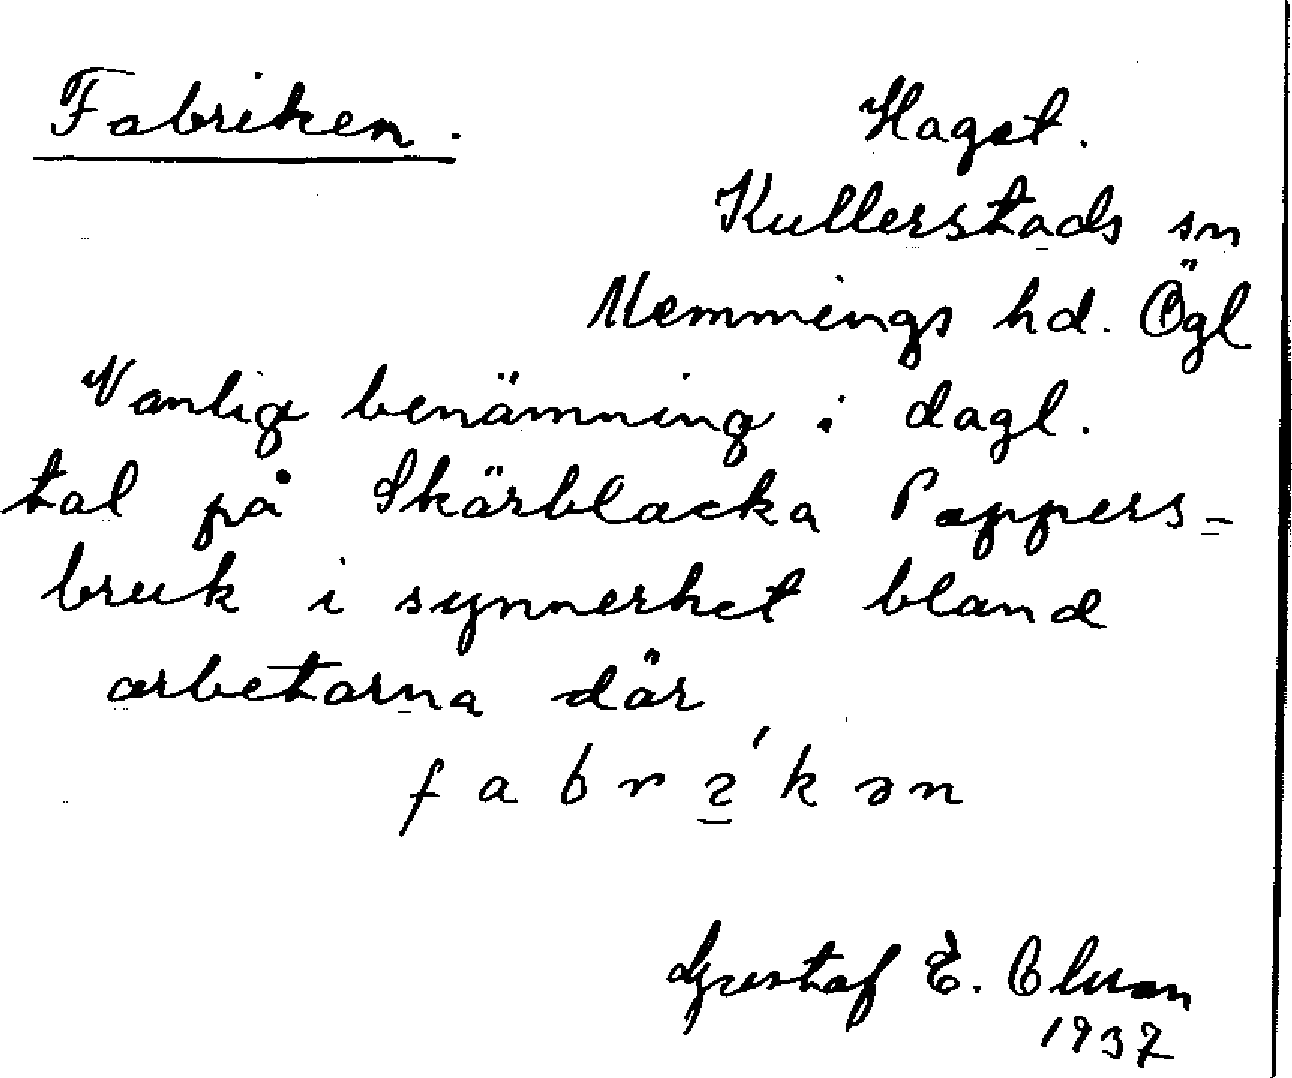 Fabriken.
Hagst.
Kullerstads sn
Memmings hd. Ögl
Vanlig benämning i dagl.
tal på Skärblacka Pappers-
bruk i synnerhet bland
arbetarna där
f a b r i ́ k ə n
Gustaf E.
1937